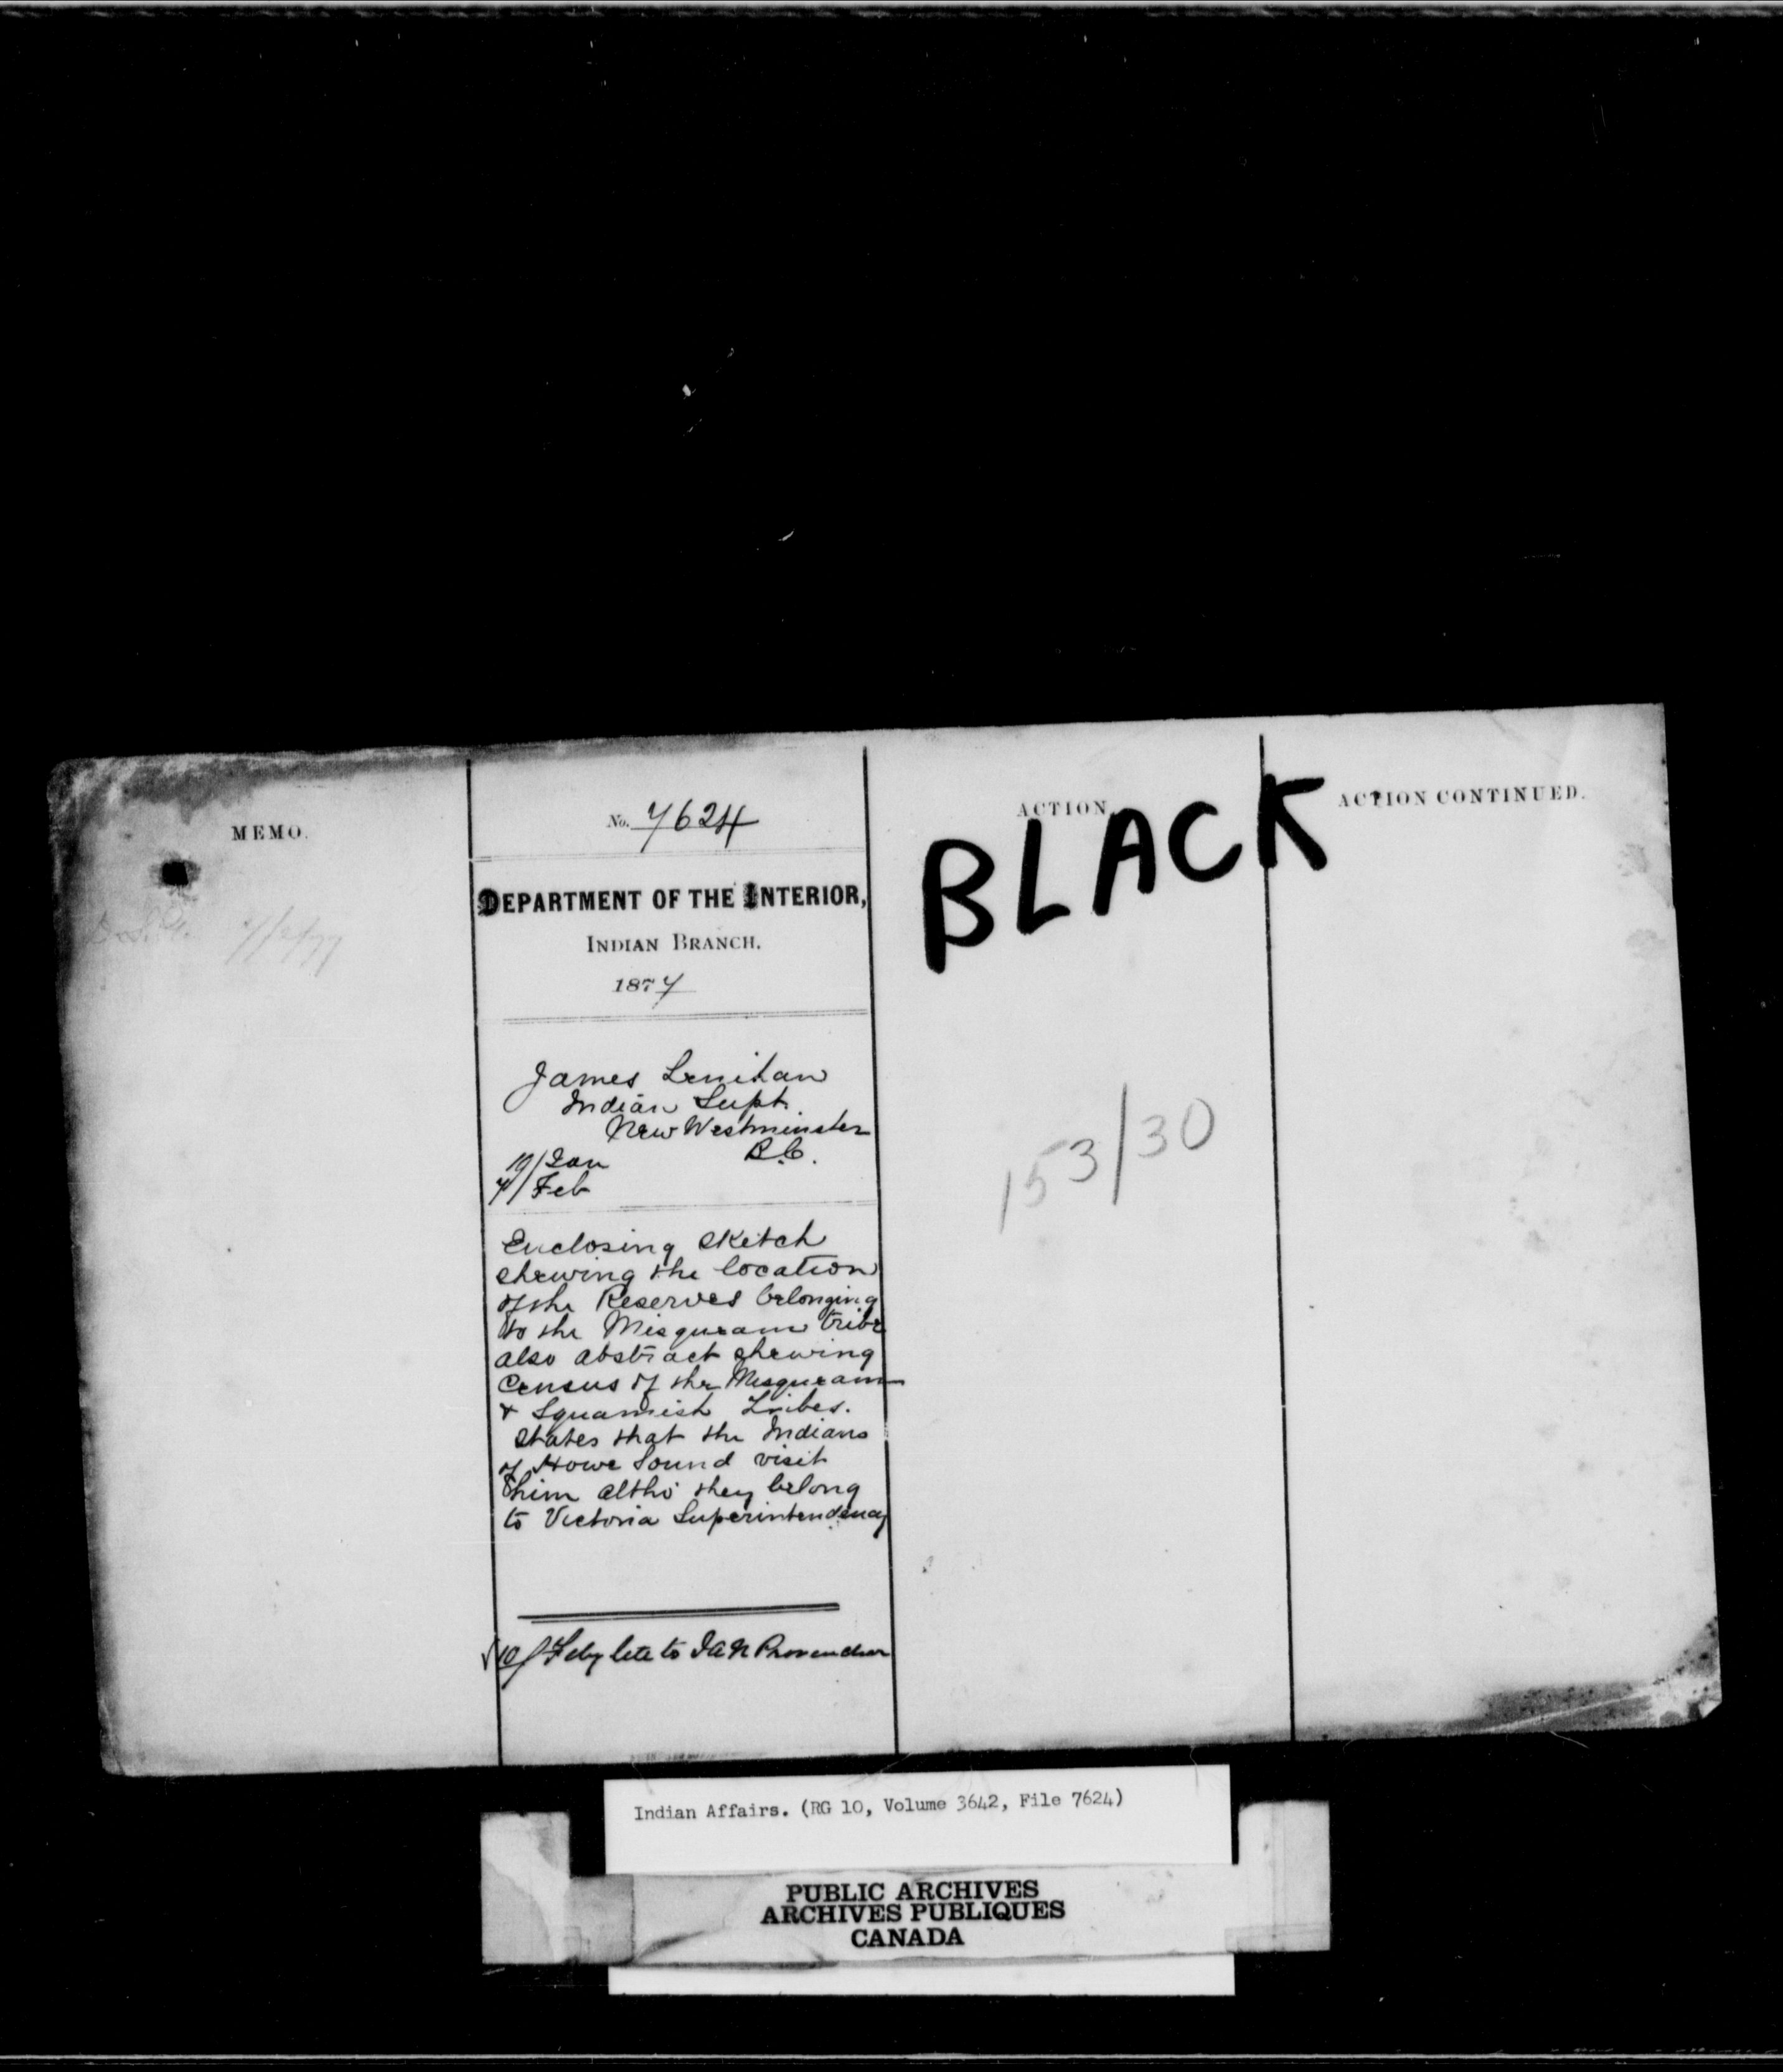 MEMO.
7/2/77
No. 7624
DEPARTMENT OF THE INTERIOR,
INDIAN BRANCH.
1877
James Lenihan
Indian Supt.
New Westminster
B.C.
19/Jan
7/Feb
Enclosing sketch
shewing the location
of the Reserves belonging
to the Misqueam tribe
also abstract shewing
Census of the Misqueam
& Squamish Tribes.
States that the Indians
of Howe Sound visit
him altho' they belong
to Victoria Superintendency
10/Feby lete to JAN Provencher
ACTION.
BLACK
153/30
ACTION CONTINUED.
Indian Affairs. (RG 10, Volume 3642, File 7624)
PUBLIC ARCHIVES
ARCHIVES PUBLIQUES
CANADA